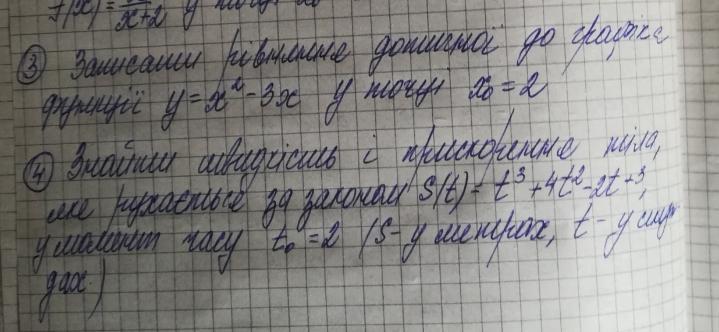 f(x) = x+2 у точці
③ Записати рівняння дотичної до графіка
функції y = x² - 3x у точці x₀ = 2
④ Знайти швидкість і прискорення тіла,
яке рухається за законом S(t) = t³ + 4t² - 2t + 3,
у момент часу t₀ = 2 (S - у метрах, t - у секун
дах.)